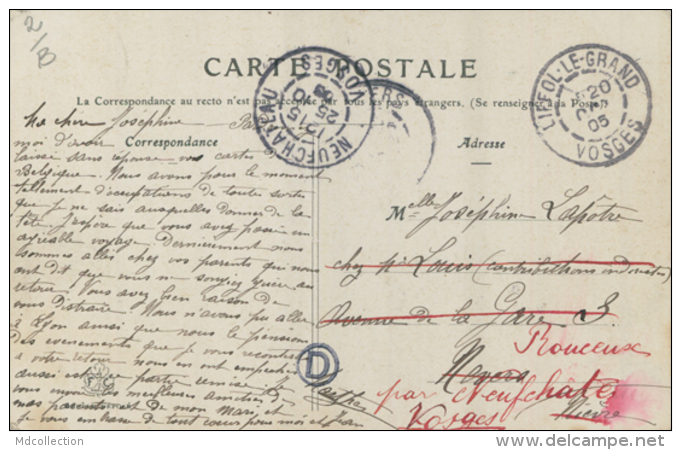 2/B
CARTE POSTALE
La Correspondance au recto n'est pas acceptée par tous les pays étrangers. (Se renseigner à la Poste)
Correspondance
Adresse
NEUFCHATEAU VOSGES
LIFFOL-LE-GRAND
20
05
VOSGES
Ma chère Joséphine
moi d'avoir
laissé sans réponse vos cartes
Belgique. Nous avons pour le moment
tellement d'occupations de toutes sortes
que je ne sais auxquelles donner de la
tête J'espère que vous avez passé un
agréable voyage. Dernièrement nous
sommes allés chez vos parents qui nous
ont dit que vous ne songiez guère au
retour. Vous avez bien raison de
vous distraire. Nous n'avons pu aller
à Lyon ainsi que nous le pensions
Des évènements que je vous
à votre retour nous en ont empêchés
aussi est-ce partie remise. Je
vous envoie les meilleures amitiés de
mes parents et de mon Mari, et
je vous embrasse de tout cœur pour moi et Jean
Melle Joséphine Lapôtre
chez Mr Louis (contributions indirectes)
Avenue de la Gare 3.
Rouceux
par Neufchâteau
Vosges
Nièvre
D
Mdcollection
www.delcampe.net